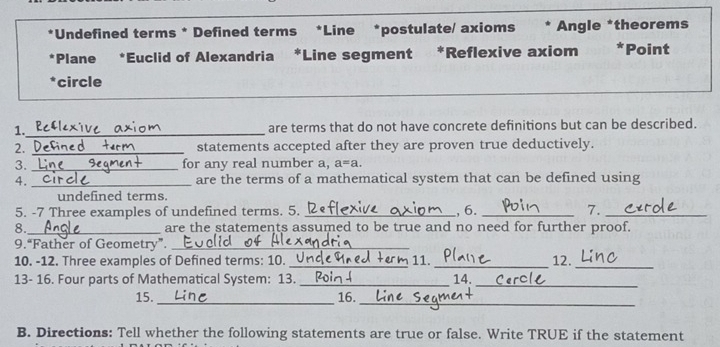 *Undefined terms * Defined terms *Line *postulate/ axioms * Angle *theorems
*Plane *Euclid of Alexandria *Line segment *Reflexive axiom *Point
*circle
1. Reflexive axiom are terms that do not have concrete definitions but can be described.
2. Defined term statements accepted after they are proven true deductively.
3. Line segment for any real number a, a=a.
4. circle are the terms of a mathematical system that can be defined using
undefined terms.
5. -7 Three examples of undefined terms. 5. Reflexive axiom, 6. Poin 7. cxrcle
8. Angle are the statements assumed to be true and no need for further proof.
9."Father of Geometry". Euclid of Alexandria
10. -12. Three examples of Defined terms: 10. Undefined term 11. Plane 12. Line
13- 16. Four parts of Mathematical System: 13. Point 14. Cercle
15. Line 16. Line Segment
B. Directions: Tell whether the following statements are true or false. Write TRUE if the statement